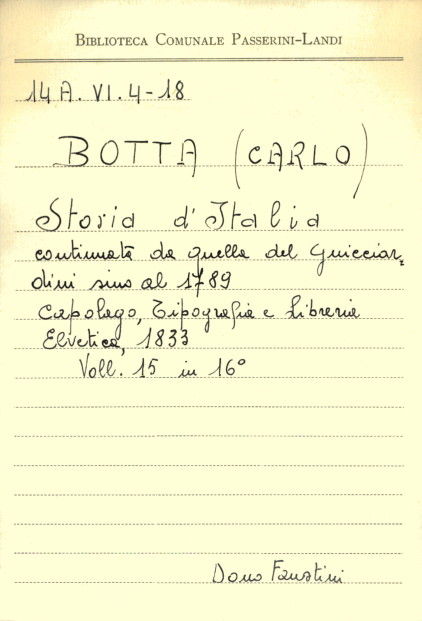 BIBLIOTECA COMUNALE PASSERINI-LANDI
14 A. VI. 4-18
BOTTA (CARLO)
Storia d'Italia
continuata da quella del Guicciar-
dini sino al 1789
Capolago, Tipografia e Libreria
Elvetica, 1833
Voll. 15 in 16°
Dono Faustini